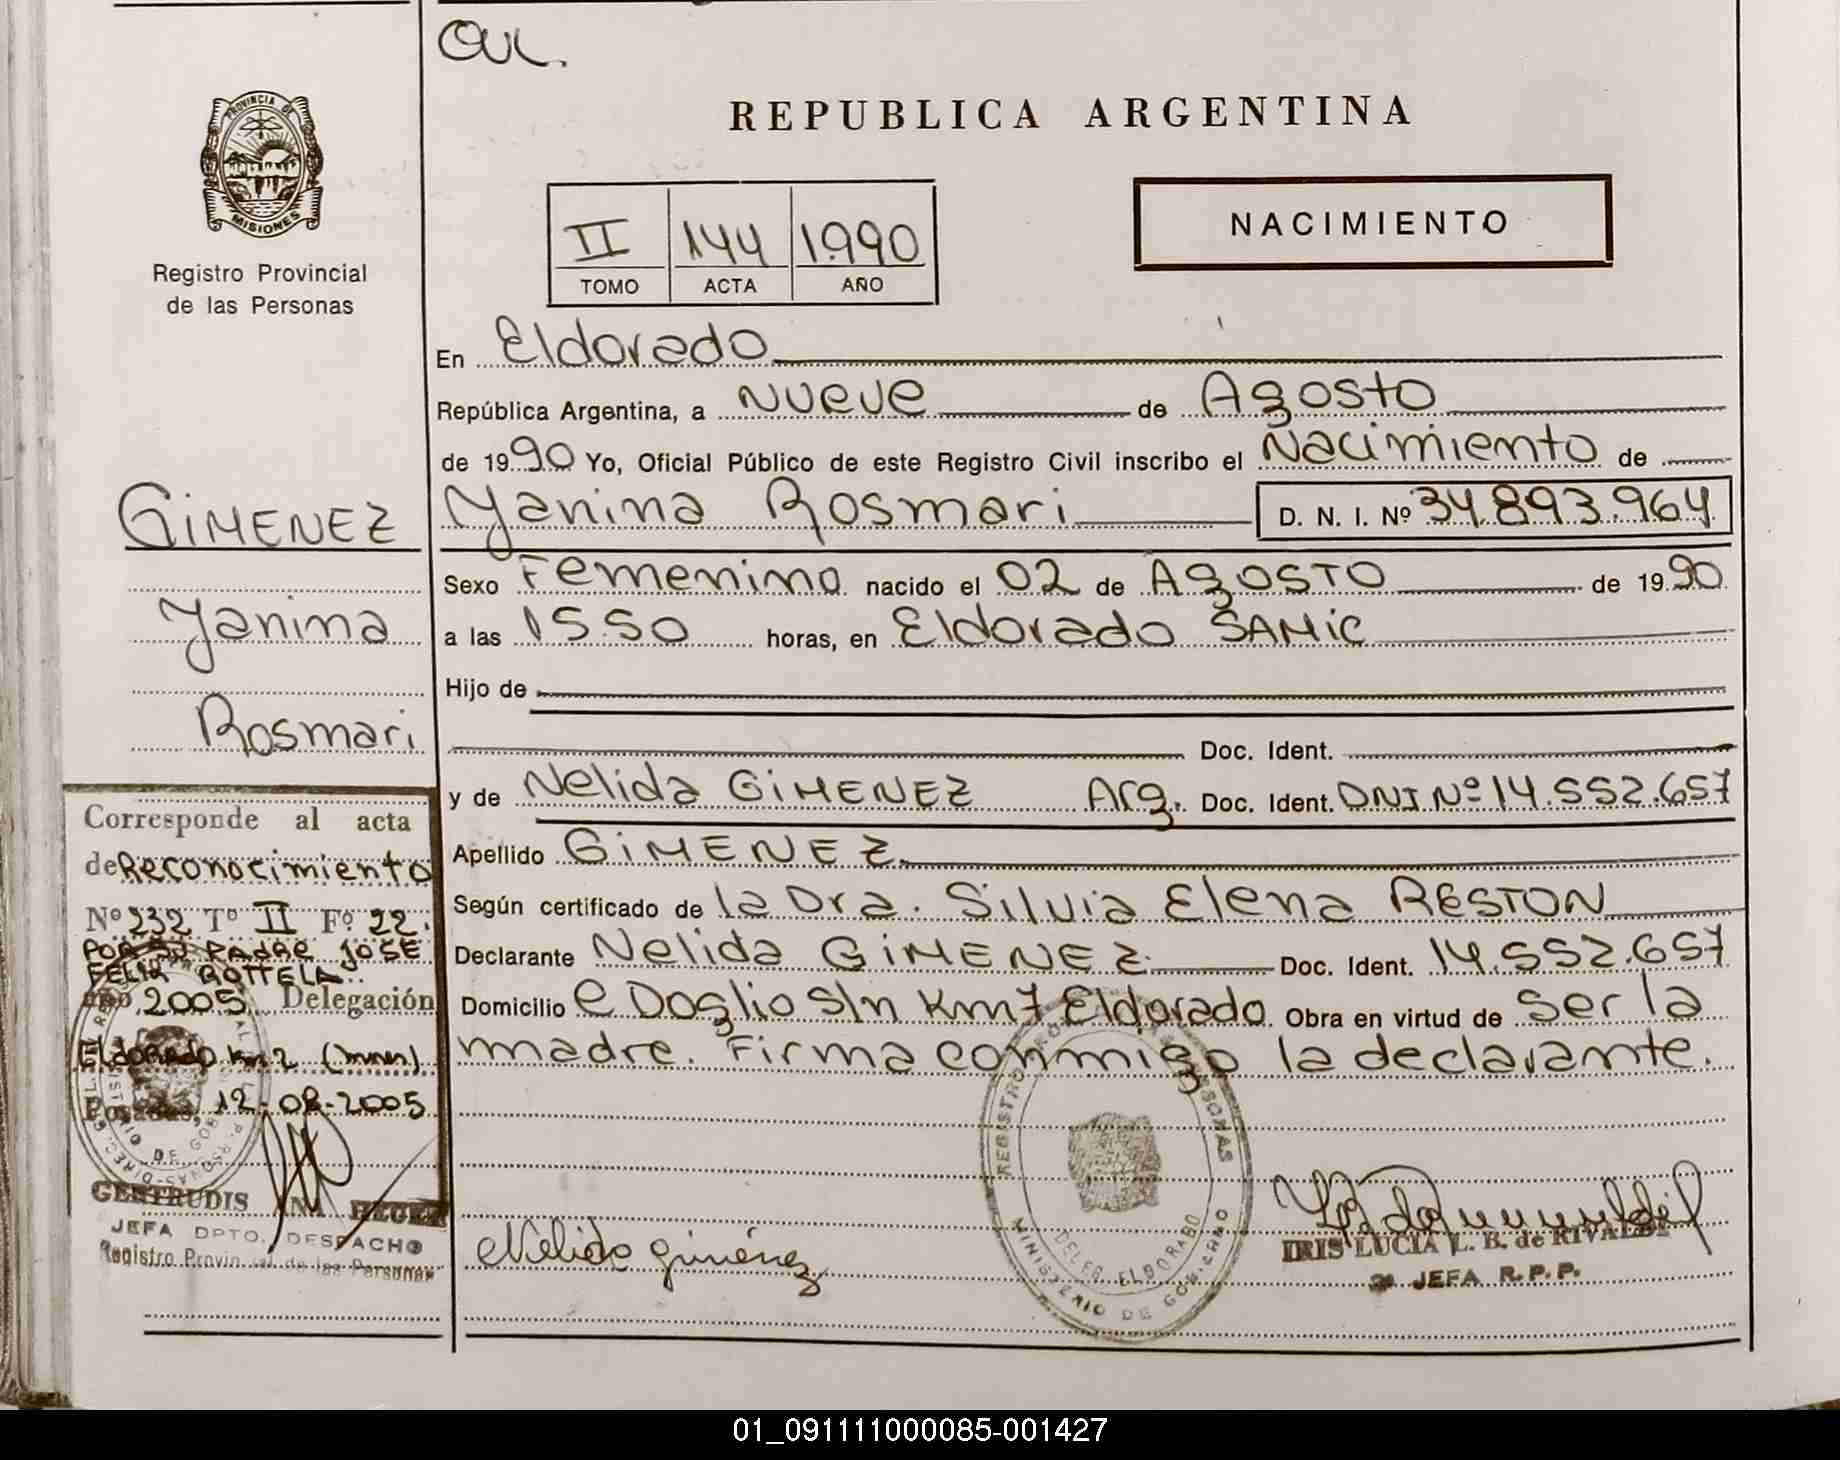 PROVINCIA DE
MISIONES
Registro Provincial
de las Personas
GIMENEZ
Yanina
Rosmari
Corresponde al acta
de Reconocimiento
Nº 232 Tº II Fº 22.
POR SU PADRE JOSE
FELIX BOTTELA.
año 2005 Delegación
Eldorado Km 2 (mnes)
Posadas, 12-08-2005
GERTRUDIS ANA
JEFA DPTO. DESPACHO
Registro Provincial de las Personas
REPUBLICA ARGENTINA
II 144 1990
TOMO ACTA AÑO
NACIMIENTO
En Eldorado
República Argentina, a Nueve de Agosto
de 1990 Yo, Oficial Público de este Registro Civil inscribo el Nacimiento de
Yanina Rosmari D. N. I. Nº 34.893.964
Sexo Femenino nacido el 02 de AgOSTO de 1990
a las 15.50 horas, en Eldorado SAMIC
Hijo de
Doc. Ident.
y de Nelida GIMENEZ Arg. Doc. Ident. DNI Nº 14.552.657
Apellido GIMENEZ
Según certificado de la Dra. Silvia Elena RESTON
Declarante Nelida GIMENEZ Doc. Ident. 14.552.657
Domicilio e Doglio S/n Km 7 Eldorado Obra en virtud de ser la
madre. Firma conmigo la declarante.
Nelida Giménez
MINISTERIO DE GOBIERNO
IRIS LUCIA L. B. de RIVALDI
JEFA R.P.P.
01_091111000085-001427